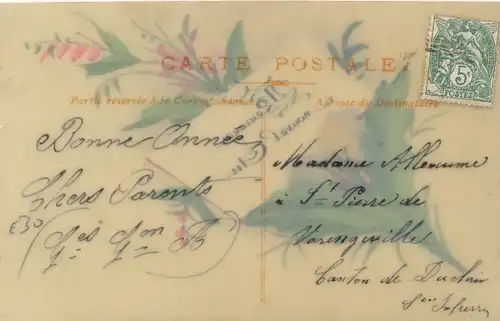 CARTE POSTALE
Partie réservée à la Correspondance
Adresse du Destinataire
5c
POSTES
Bonne Année
Chers Parents
Madame Alleaume
à St Pierre de
Varengeville
Canton de Duclair
Sne Inferre
£30